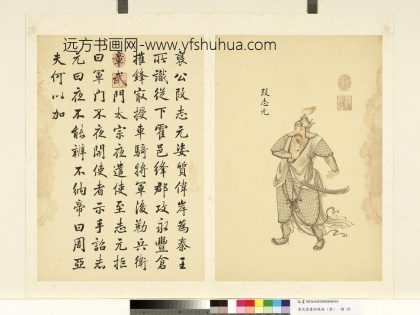 远方书画网-www.yfshuhua.com
段志元
襄公段志元姿質偉岸為秦王
所識從下霍邑絳郡攻永豐倉
摧鋒最授車騎將軍後勒兵衛
章武門太宗夜遣使至志元拒
曰軍門不夜開使者示手詔志
元曰夜不能辨不納帝曰周亞
夫何以加